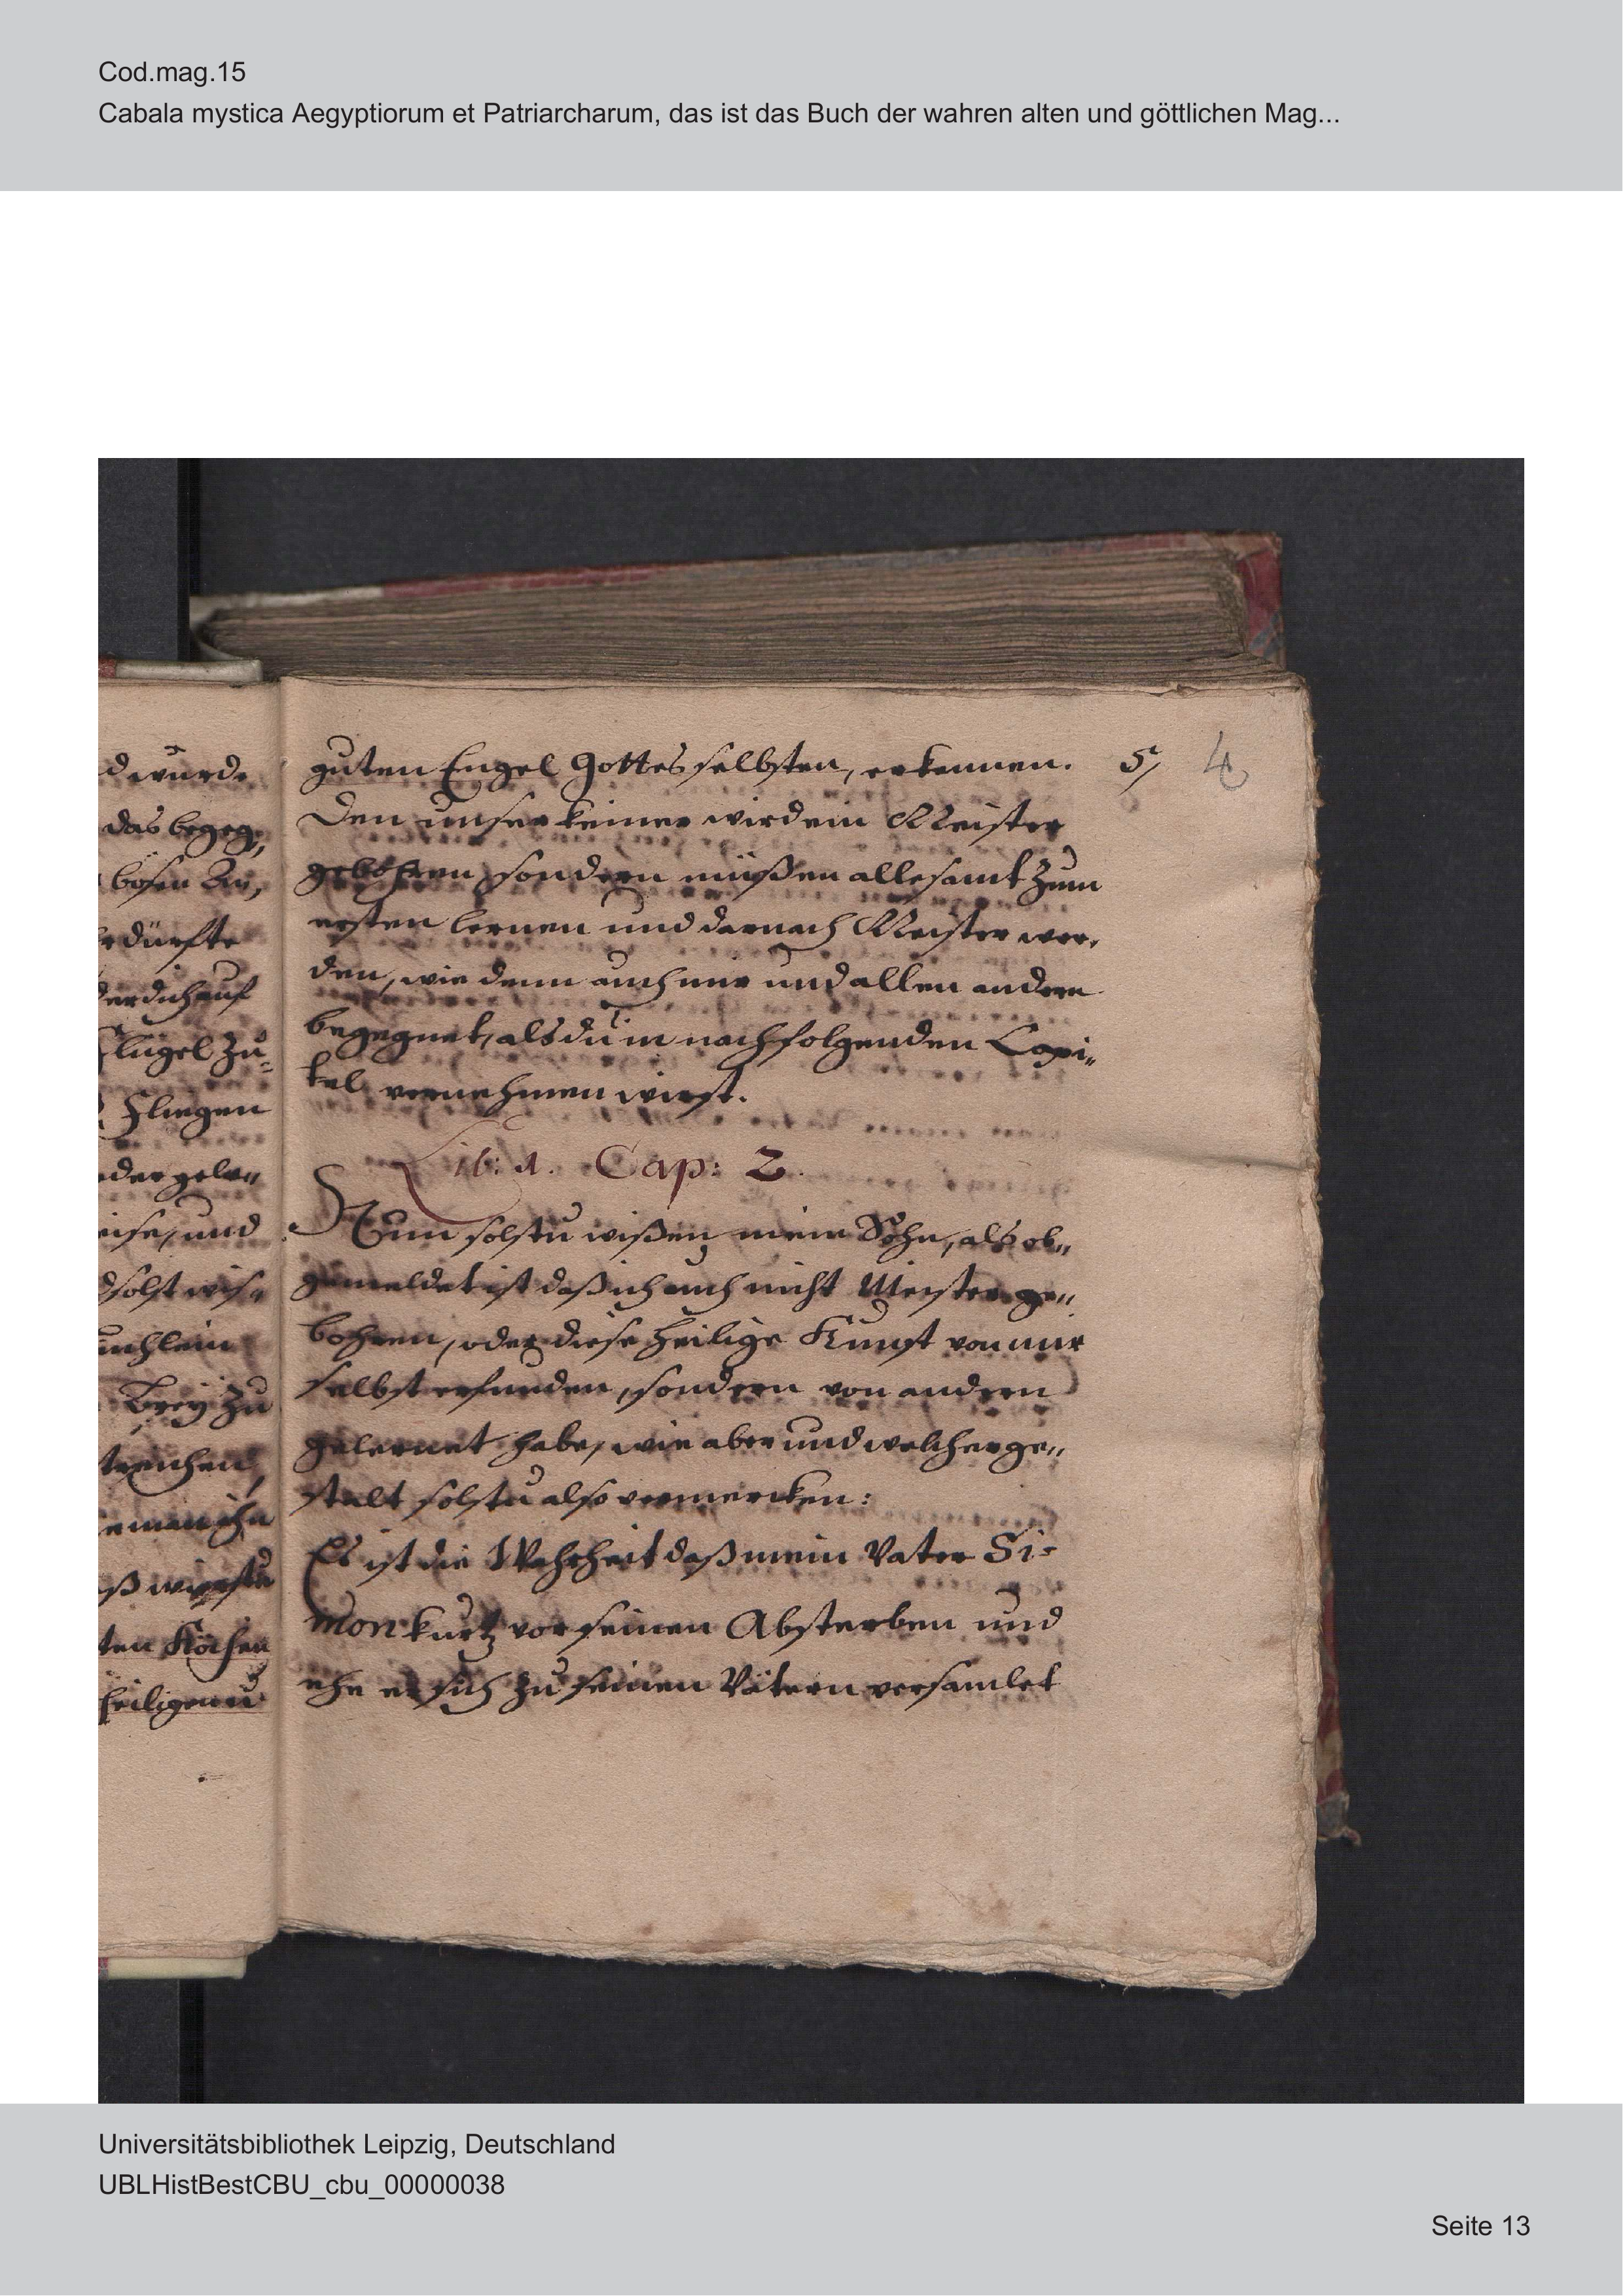 Cod.mag.15
Cabala mystica Aegyptiorum et Patriarcharum, das ist das Buch der wahren alten und göttlichen Mag...
d wurde
das begeg„
bösen
dürfte
der dich auf
flügel zu=
fliegen
oder gele„
eise, und
dsolst wis„
uchlein
Brey zu
streichen,
eman ihn
aß wirstu
ten Kochen
heiligen
guten Engel Gottes selbsten, erkennen. 5, 4
Den unser keiner wird ein Meister
gebohren, sondern müßen allesamt zum
ersten lernen und darnach Meister wer„
den, wie denn auch mir und allen andern
begegnet, als du in nachfolgenden Capi„
tel vernehmen wirst.
Lib: 1. Cap: 2.
Nun solstu wißen mein Sohn, als ob„
gemeldet ist daß ich auch nicht Meister ge„
bohren, oder diese heilige Kunst von mir
selbst erfunden, sondern von andern
gelernet habe, wie aber und welcher ge„
stalt solstu also vermercken:
Es ist die Wahrheit daß mein Vater Si=
mon kurtz vor seinen Absterben und
ehe er sich zu seinen Vätern versamlet
Universitätsbibliothek Leipzig, Deutschland
UBLHistBestCBU_cbu_00000038
Seite 13